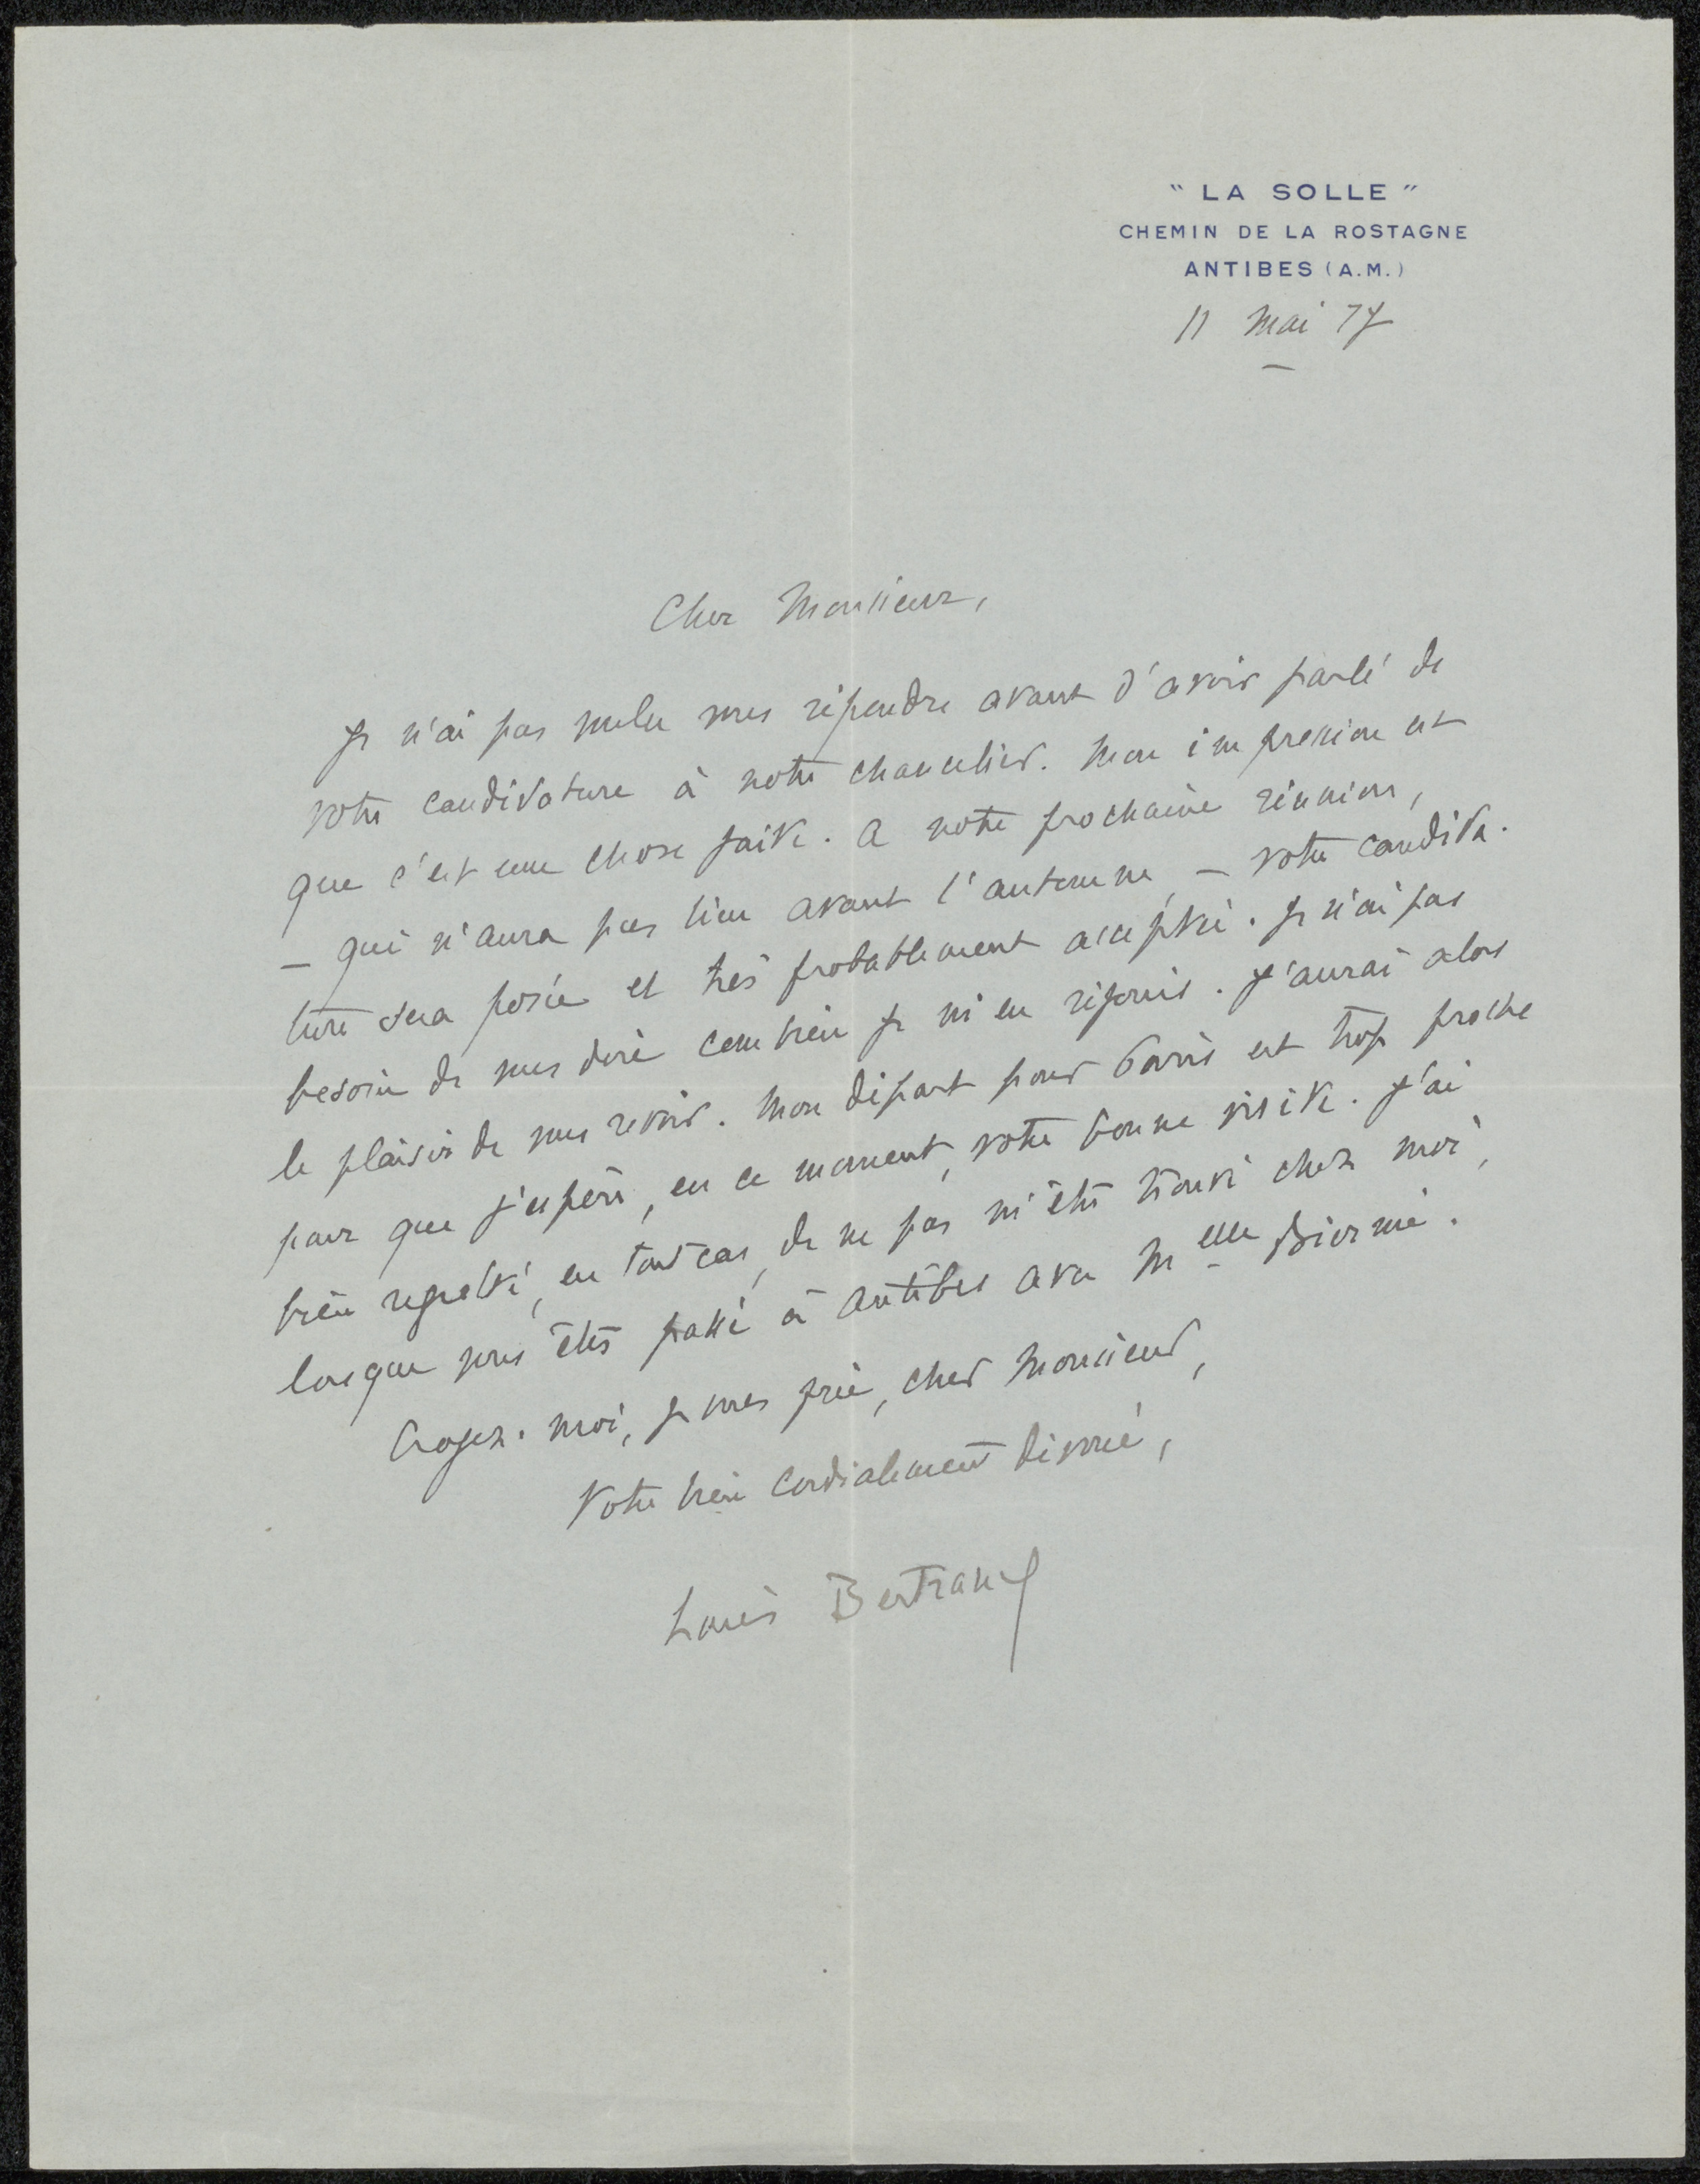 " LA SOLLE "
CHEMIN DE LA ROSTAGNE
ANTIBES (A.M.)
11 Mai 37
Cher Monsieur,
Je n'ai pas voulu vous répondre avant d'avoir parlé de
votre candidature à notre chancelier. Mon impression est
que c'est une chose faite. A notre prochaine réunion,
– qui n'aura pas lieu avant l'automne, – votre candida-
ture sera posée et très probablement acceptée. Je n'ai pas
besoin de vous dire combien je m'en réjouis. J'aurai alors
le plaisir de vous revoir. Mon départ pour Paris est trop proche
pour que j'espère, en ce moment, votre bonne visite. J'ai
bien regretté, en tout cas, de ne pas m'être trouvé chez moi,
lorsque vous êtes passé à Antibes avec Melle Biermé.
Croyez-moi, je vous prie, cher Monsieur,
Votre bien cordialement dévoué,
Louis Bertrand